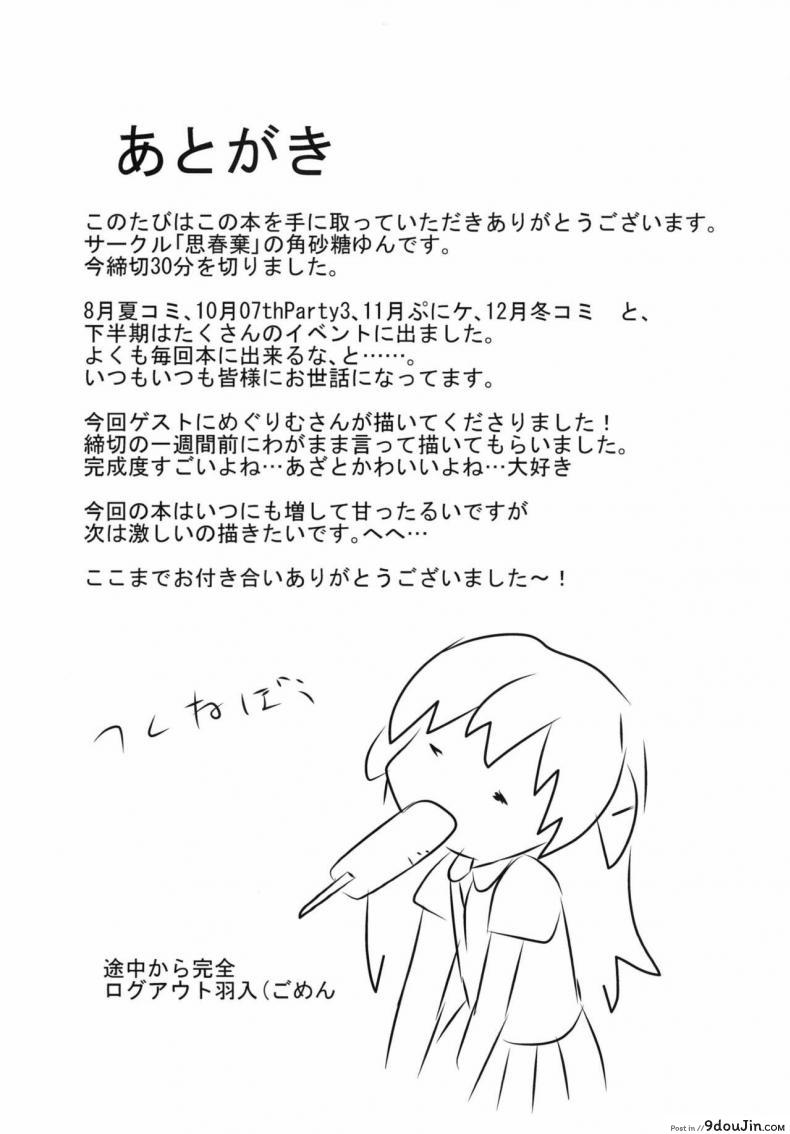 あとがき
このたびはこの本を手に取っていただきありがとうございます。
サークル「思春棄」の角砂糖ゆんです。
今締切30分を切りました。
8月夏コミ、10月07thParty3、11月ぷにケ、12月冬コミ　と、
下半期はたくさんのイベントに出ました。
よくも毎回本に出来るな、と……。
いつもいつも皆様にお世話になってます。
今回ゲストにめぐりむさんが描いてくださりました！
締切の一週間前にわがまま言って描いてもらいました。
完成度すごいよね…あざとかわいいよね…大好き
今回の本はいつにも増して甘ったるいですが
次は激しいの描きたいです。へへ…
ここまでお付き合いありがとうございました～！
つくねぼう
途中から完全
ログアウト羽入（ごめん
Post in // 9douJin.com